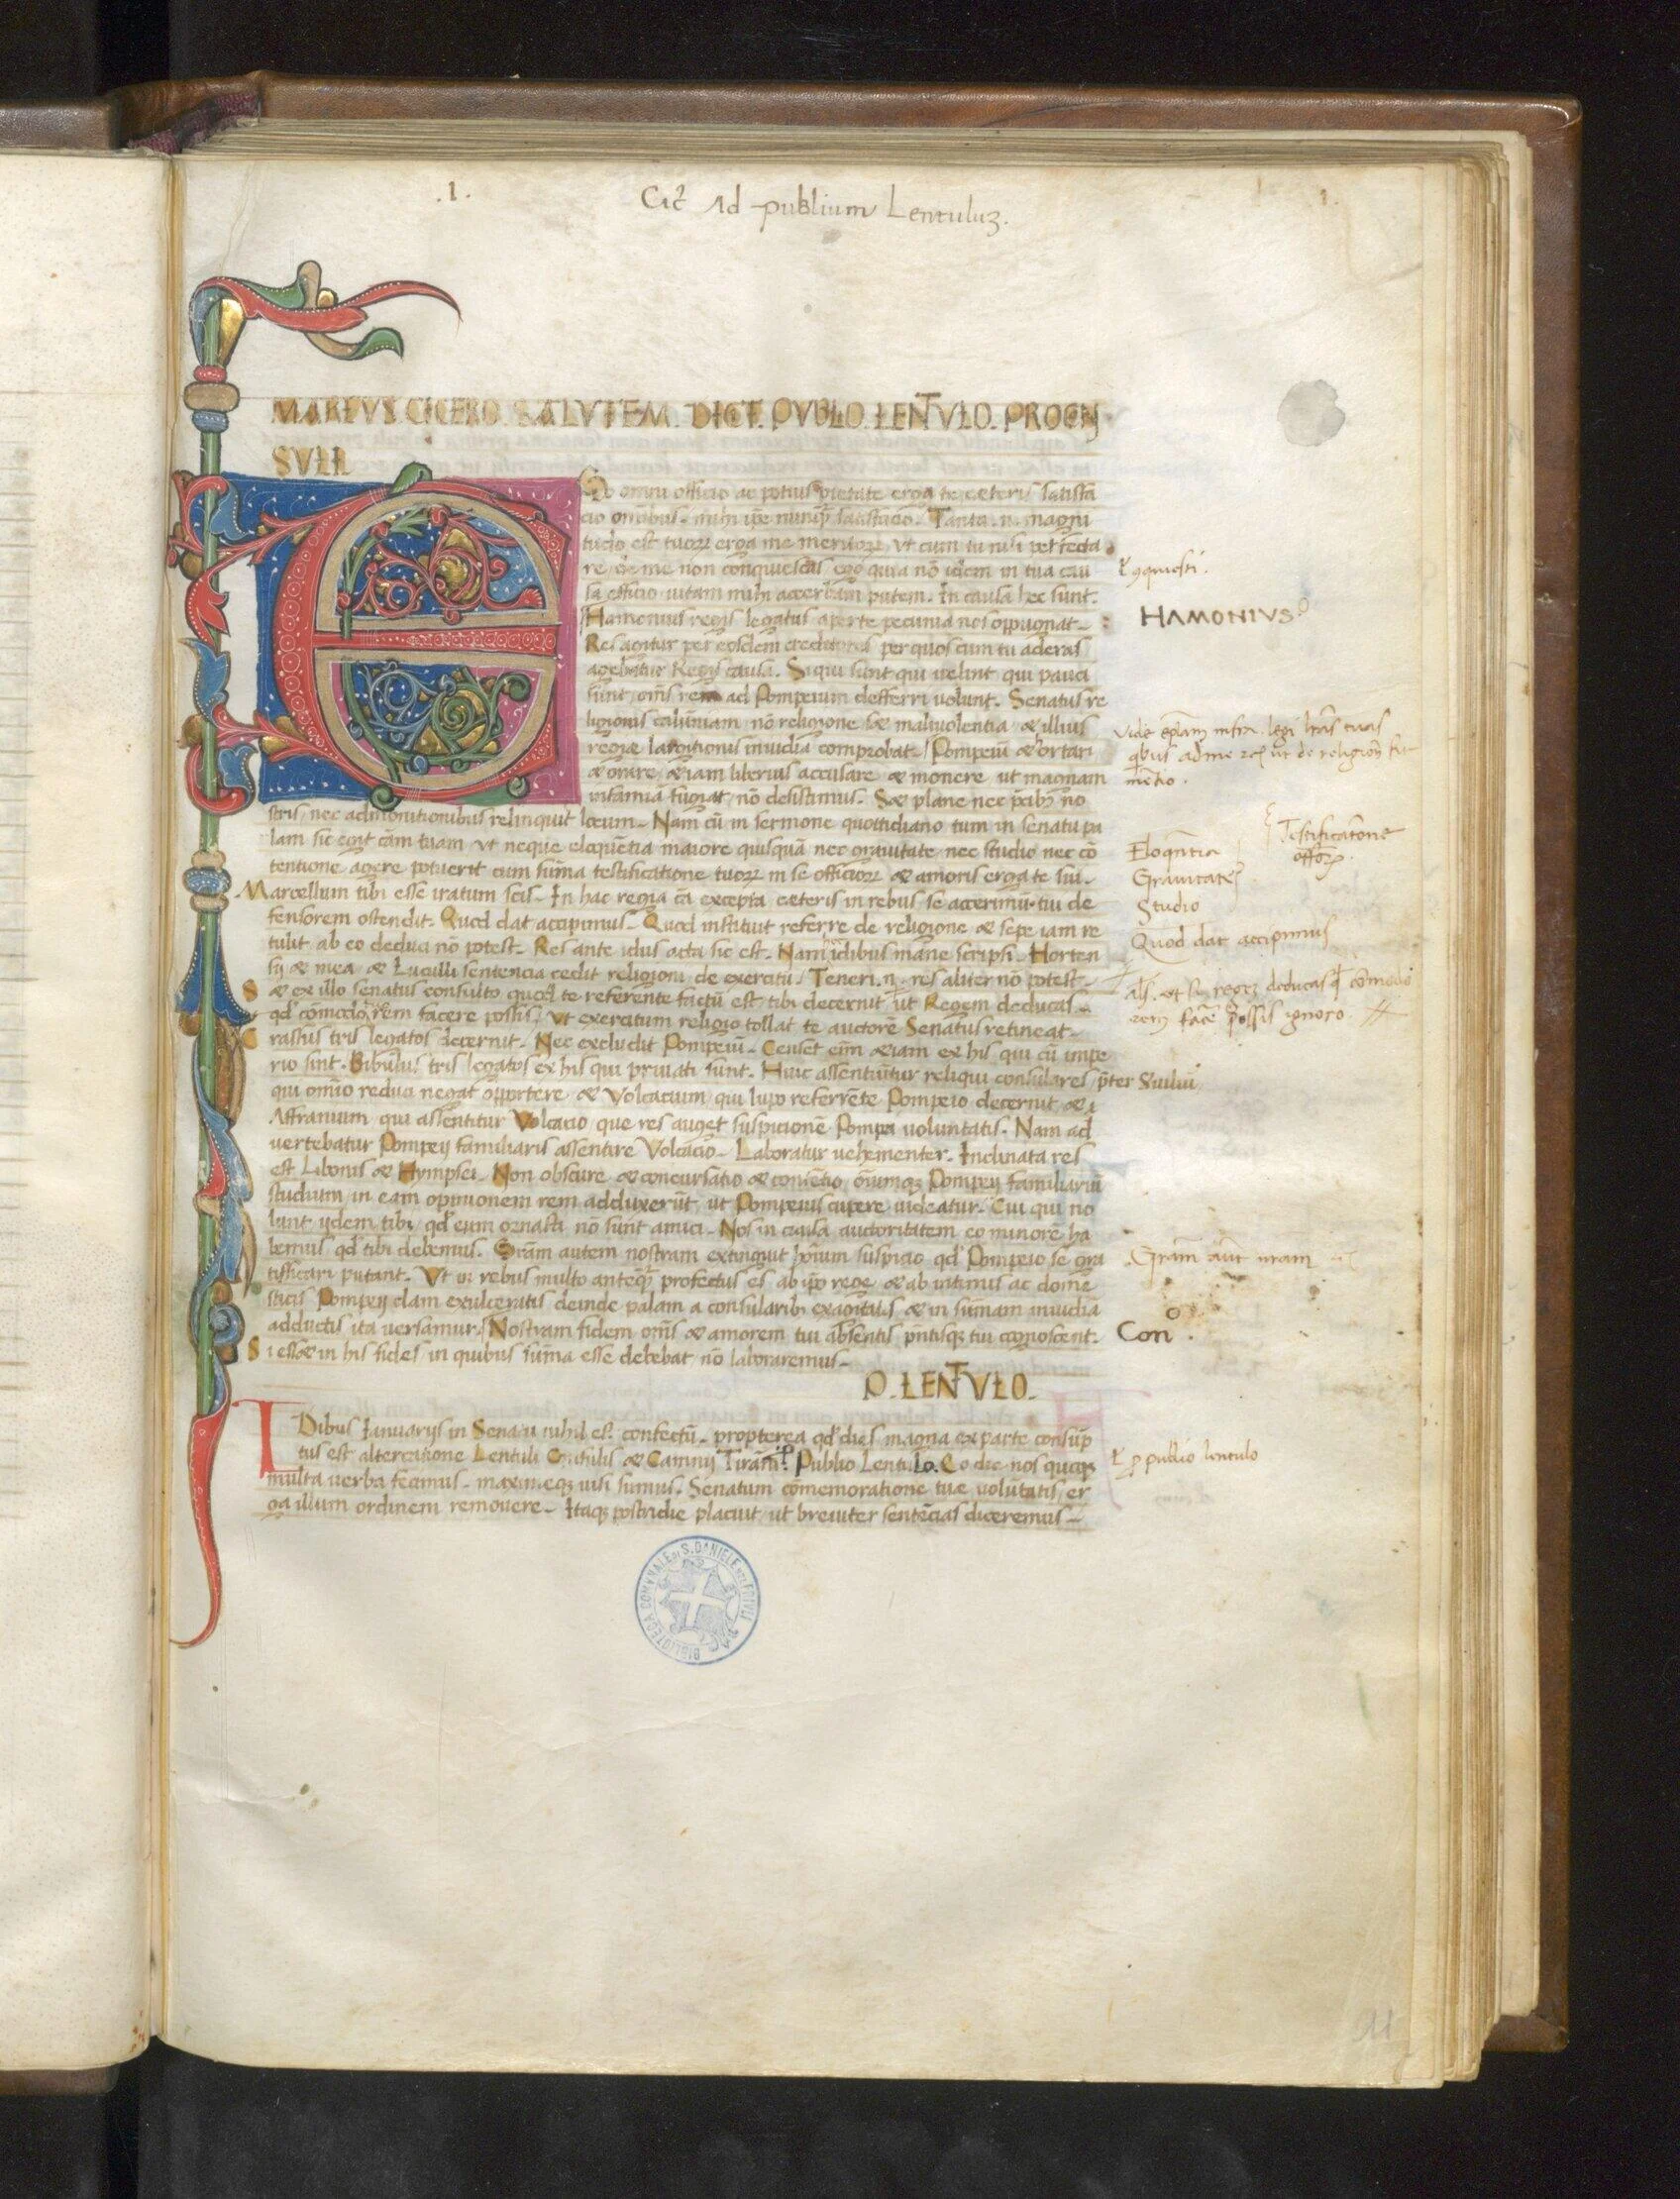 .1.
Cic̄ Ad publium Lentuluʒ.
1.
MARCVS. CICERO. SALVTEM. DICT. PVBLO. LENTVLO. PROCN
SVLI
EGo omni officio ac potius pietate erga te ceteris satisfa
cio omibus. mihi ip̄e nunq̄ȝ satisfacio. Tanta .n. magni
tudo est tuoꝝ erga me meritoꝝ, vt cum tu nisi perfecta
re de me non conquiescas ego quia nō idem in tua cau
sa efficio vitam mihi accerbam putem. In causa hec sunt.
Hamonius regis legatus aperte pecunia nos oppugnat.
Res agitur per eosdem creditores per quos cum tu aderas
agebatur Regis causa. Siqui sunt qui velint qui pauci
sunt, om̄s rem ad Pompeium defferri volunt. Senatus re
ligionis calūniam nō religione sed malivolentia & illius
regiæ largitionis invidia comprobat. Pompeiū & ortari
& orare & iam liberius accusare & monere ut magnam
infamiā fugiat, nō desistimus. Sed plane nec p̄cibꝫ no
stris, nec admonitionibus relinquit locum. Nam cū in sermone quottidiano tum in senatu pa
lam sic egit cām tuam vt neque eloquētia maiore quisquā nec gravitate nec studio nec cō
tentione agere potuerit cum sum̄a testificatione tuoꝝ in se officioꝝ & amoris erga te sui.
Marcellum tibi esse iratum scis. In hac regia cā excepta ceteris in rebus se accerimū tui de
fensorem ostendit. Quod dat accipimus. Quod instituit referre de religione & sepe iam re
tulit ab eo deduci nō potest. Res ante idus acta sic est. Nam idibus mane scripsi. Horten
sij & mea & Luculli sentencia cedit religioni de exercitu. Teneri .n. res aliter nō potest.
S& ex illo senatus consulto quod te referente factū est tibi decernit ut Regem deducas
qd̄ cōmodo rem facere possis, vt exercitum religio tollat te auctorē Senatus retineat.
Crassus tris legatos decernit. Nec excludit Pompeiū. Censet em̄ & iam ex his qui cū impe
rio sint. Bibulus tris legatos ex his qui privati sunt. Huic assentiūtur reliqui consulares p̄ter Sviliū
qui om̄io reduci negat opportere & Volcacium qui lupo referrete Pompeio decernit & i
Affranium qui assentitur Volcacio, que res auget suspicionē Pompei voluntatis. Nam ad
vertebatur Pompeij familiaris assentire Volcacio. Laboratur vehementer. Inclinata res
est. Libonis & Hympsei. Non obscure & concursatio & contētio, omiumqꝫ Pompeij familiariū
studium in eam opinionem rem adduxerūt, ut Pompeius cupere videatur. Cui qui no
lunt, ijdem tibi qd̄ eum ornasti nō sunt amici. Nos in causa auctoritatem eo minorē ha
bemus qd̄ tibi debemus. Gr̄am autem nostram extinguit hoīum suspicio qd̄ Pompeio se gra
tifficari putant. Vt in rebus multo anteq̄ȝ profectus es ab ip̄o rege & ab intimis ac dome
sticis Pompeij clam exulceratis deinde palam a consularibꝫ exagitatis & in sum̄am invidiā
adductis ita versamur. Nostram fidem om̄s & amorem tui absentis pn̄tisqꝫ tui cognoscent.
Si esset in his fides in quibus sum̄a esse debebat nō laboraremus.
P. LENTVLO.
IDibus Ianuarijs in Senatu nihil est confectū. propterea qd̄ dies magna ex parte consūp
tus est altercatione Lentuli Consulis & Caninij Tirani. Publio Lentulo. Eo die nos quoqꝫ
multa verba fecimus. maximeqꝫ visi sumus. Senatum cōmemoratione tuæ volūtatis er
ga illum ordinem removere. Itaqꝫ postridie placuit ut breviter sentēcias diceremus.
HAMONIVS
vide ep̄lam infra. legi lr̄as tuas
qbus ad me ut de religion
mētio.
Testificatōne
offoꝝ.
Eloqn̄tia
Gravitate
Studio
Quod dat accipimus
als. ut regeʒ deducas comodo
facē possis ignoro.
Gr̄am aūt nr̄am
Con .
ꝑ publio lentulo
BIBLIOTECA COMUNALE DI S. DANIELE DEL FRIULI
11